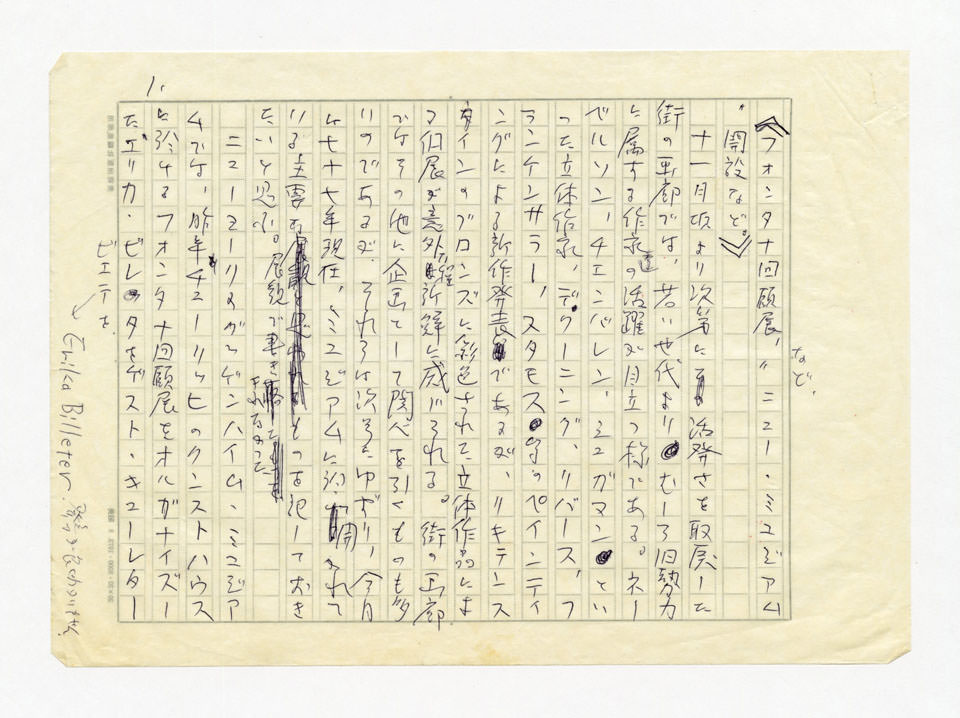 1.
《フォンタナ回顧展、〃ニュー・ミュゼアム
など、
〃開設など。》
十一月頃より次第に活発さを取戻した
街の画廊では、若いせ代よりむしろ旧勢力
に属する作家達の活躍が目立つ様である。ネー
ベルソン、チェンバレン、シガマンとい
った立体作家、デクーニング、リバース、フ
ランケンサラー、スタモス等のペインティ
ングによる新作発表であるが、リキテンス
タインのブロンズに彩色された立体作品によ
る個展が意外な程新鮮に感じられる。街の画廊
ではその他に企画として関心を引くものも多
いのであるが、それらは次号にゆずり、今月
は七十七年現在、ミュゼアムに於て開かれて
いる主要な展観
ものを記しておき
たいと思ふ。展観で書き
ニューヨークのグッゲンハイム・ミュゼア
ムでは、昨年チューリッヒのクンストハウス
に於けるフォンタナ回顧展をオルガナイズし
たエリカ・ビレタをゲスト・キューレター
ビエテを
Erika Billeter.